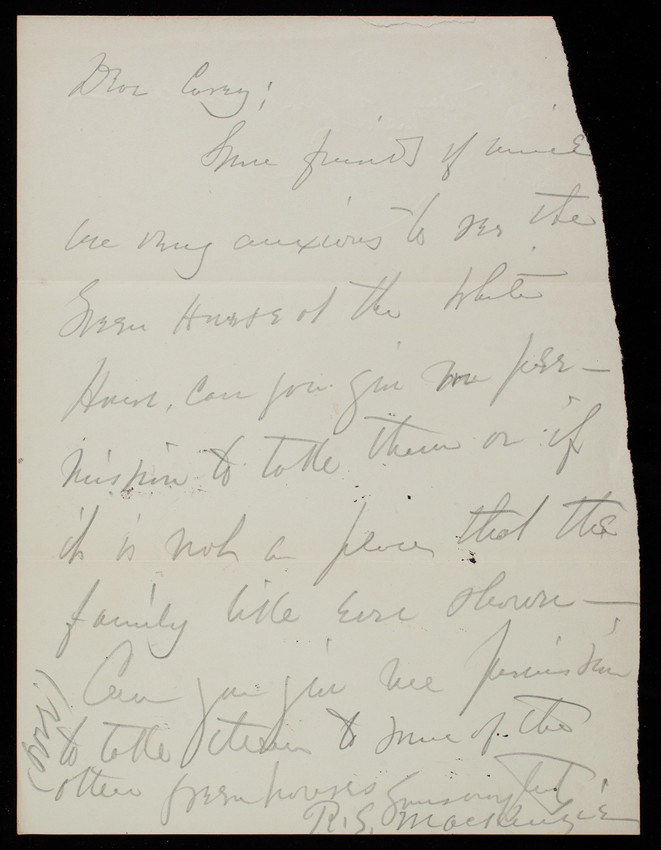 Dear Casey;
Some friends of mine
are very anxious to see the
Green House at the White
House, can you give me per-
mission to take them or if
it is not a place that the
family like ever shown —
Can you give me permission
to take them to some of the
other greenhouses
R. S. Mackenzie